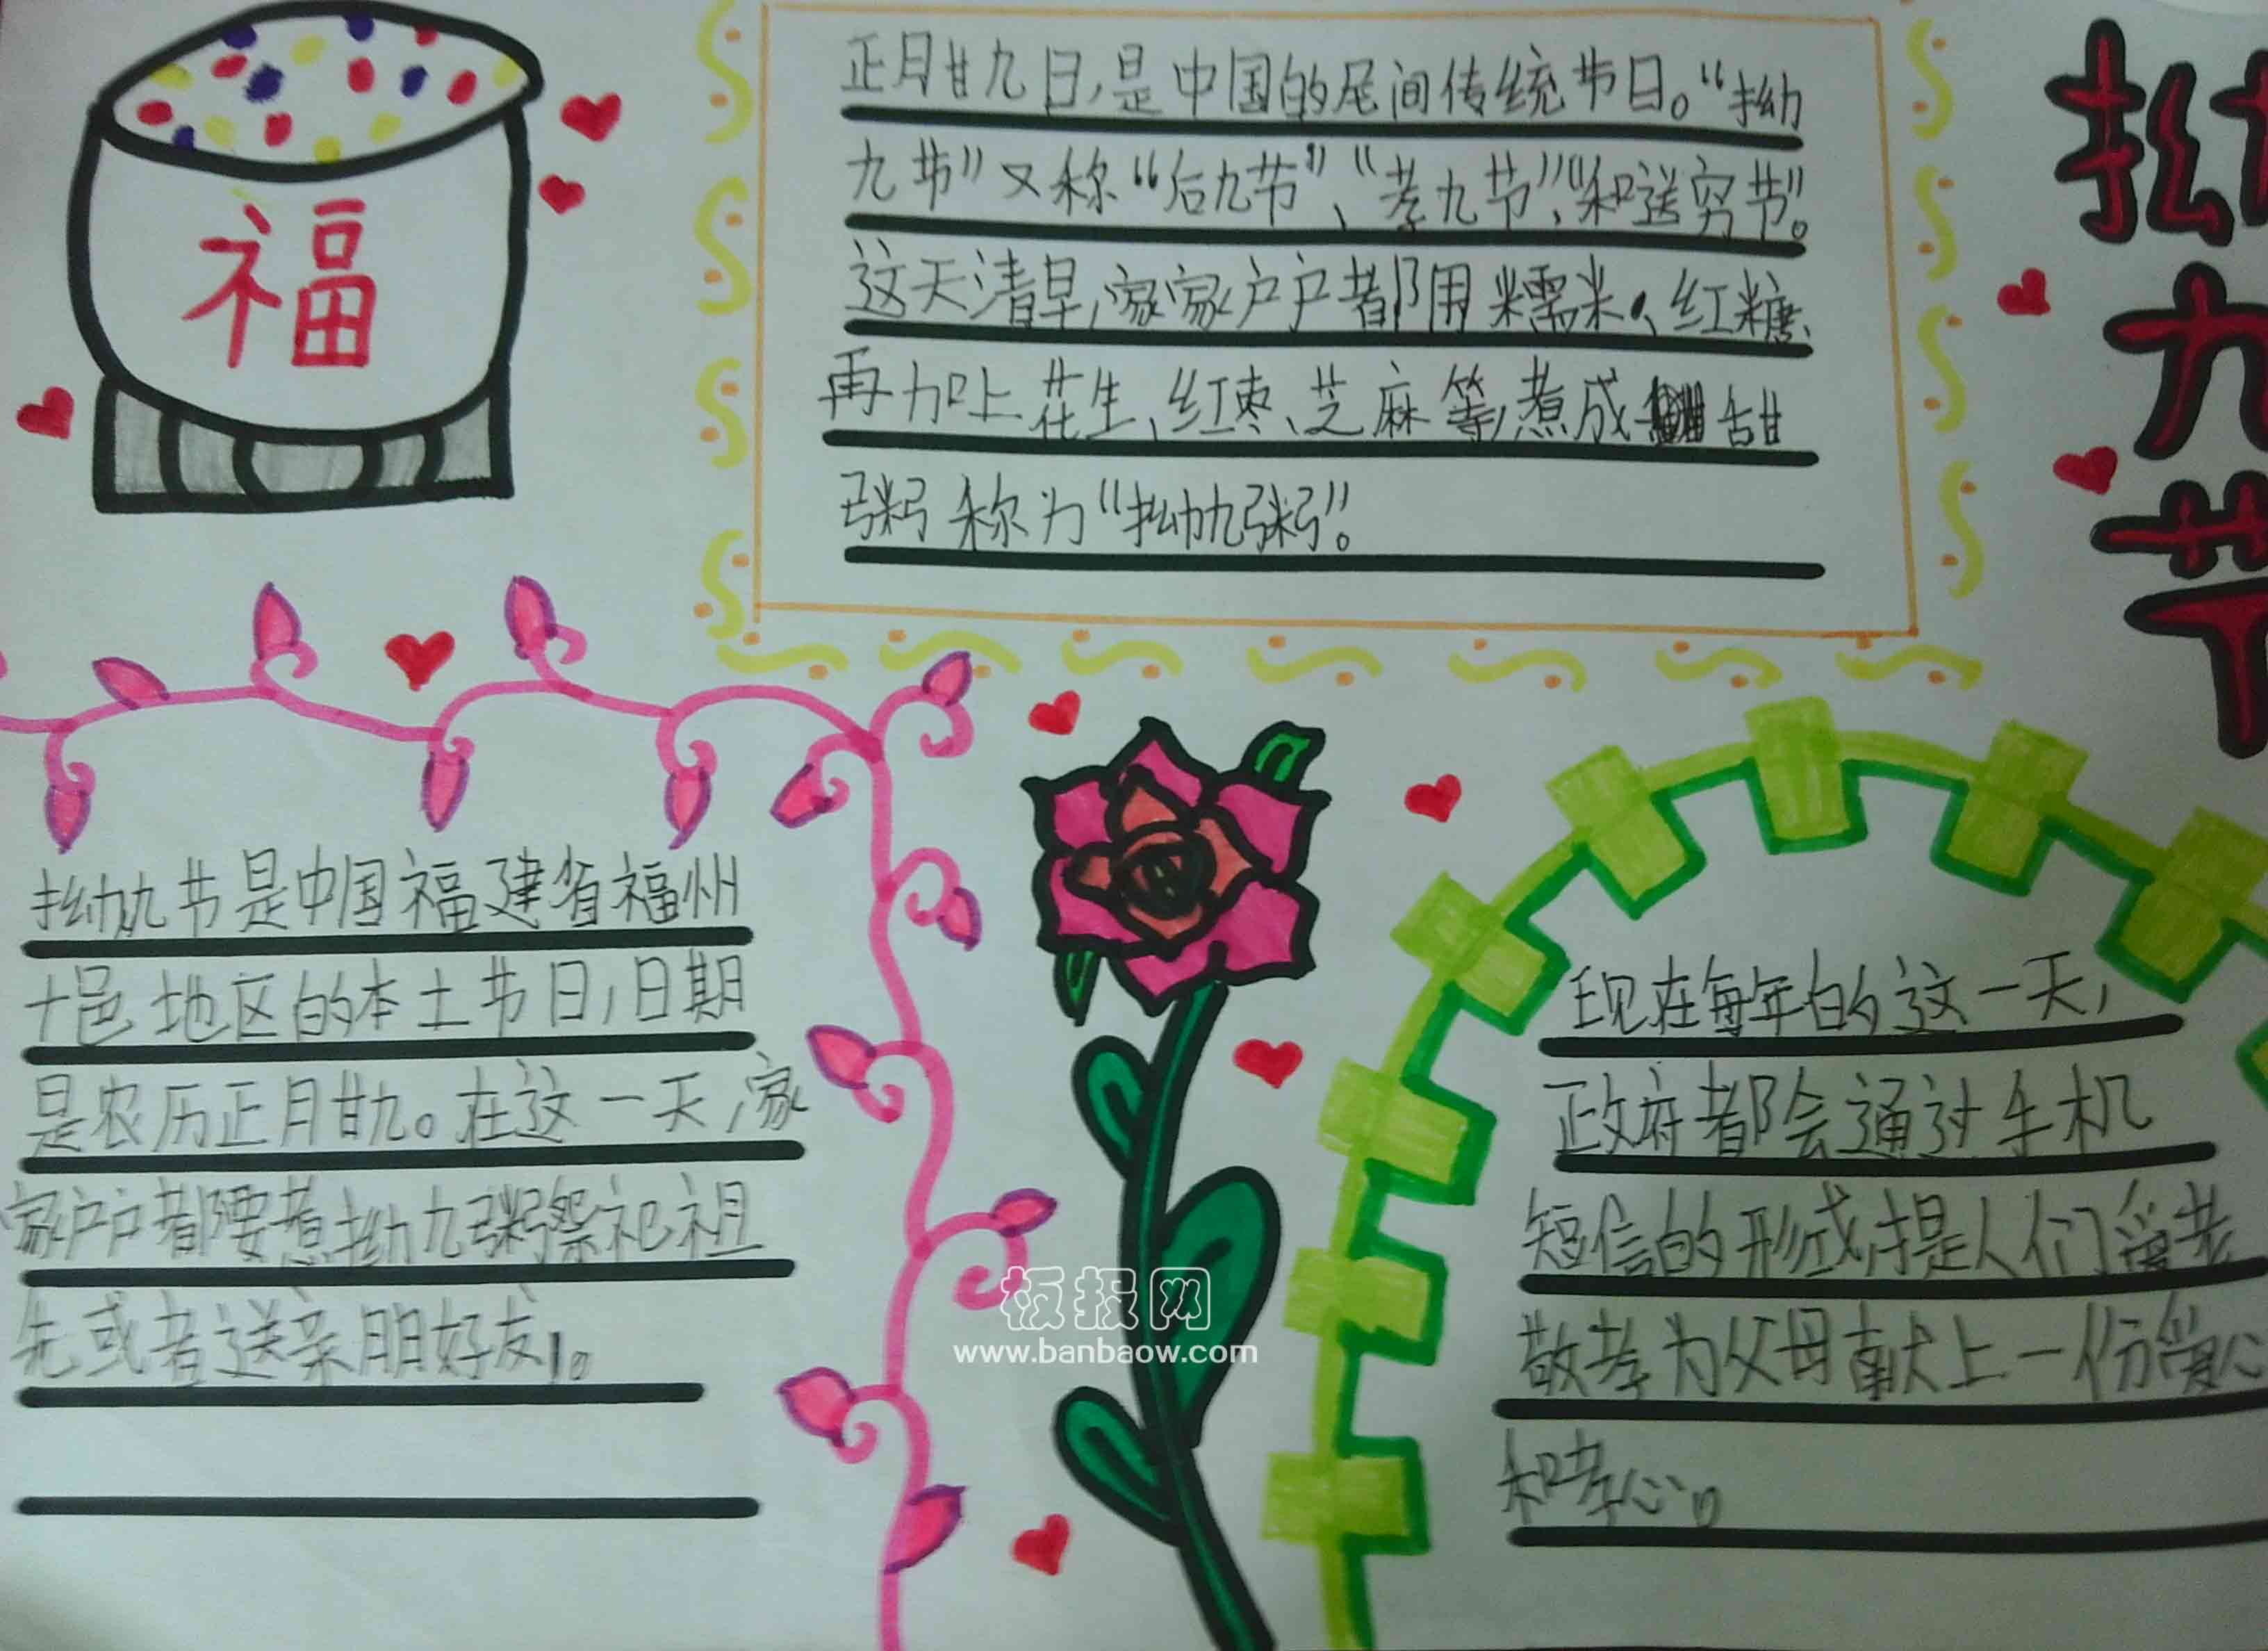 福
正月廿九日,是中国的民间传统节日。“拗
九节”又称“后九节”、“孝九节”、“和送穷节”。
这天清早,家家户户都用糯米、红糖、
再加上花生、红枣、芝麻等,煮成甜
粥称为“拗九粥”。
拗九节
拗九节是中国福建省福州
十邑地区的本土节日,日期
是农历正月廿九。在这一天,家
家户户都要煮拗九粥祭祀祖
先或者送亲朋好友。
现在每年的这一天,
政府都会通过手机
短信的形式,提人们爱老
敬孝为父母献上一份爱心
和孝心。
板报网
www.banbaow.com